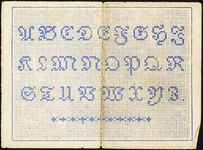 A B C D E F G H J
K L M N O P Q R
S T U V W X Y Z.